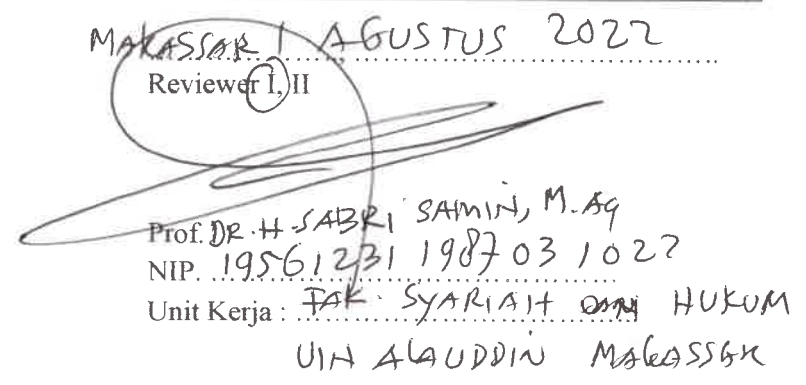 MAKASSAR 1 AGUSTUS 2022
Reviewer I, II
Prof. DR. H. SABRI SAMIN, M.Ag
NIP. 19561231 198703 1 022
Unit Kerja : FAK. SYARIAH DAN HUKUM
UIN ALAUDDIN MAKASSAR